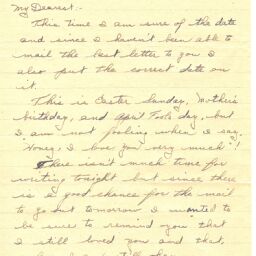 My Dearest -
This time I am sure of the date
and since I haven't been able to
mail the last letter to you I
also put the correct date on
it.
This is Easter Sunday, Mother's
birthday, and April Fools day, but
I am not fooling when I say
"Honey, I love you very much"!
There isn't much time for
writing tonight but since there
is a good chance for the mail
to go out tomorrow I wanted to
be sure to remind you that
I still loved you and that,